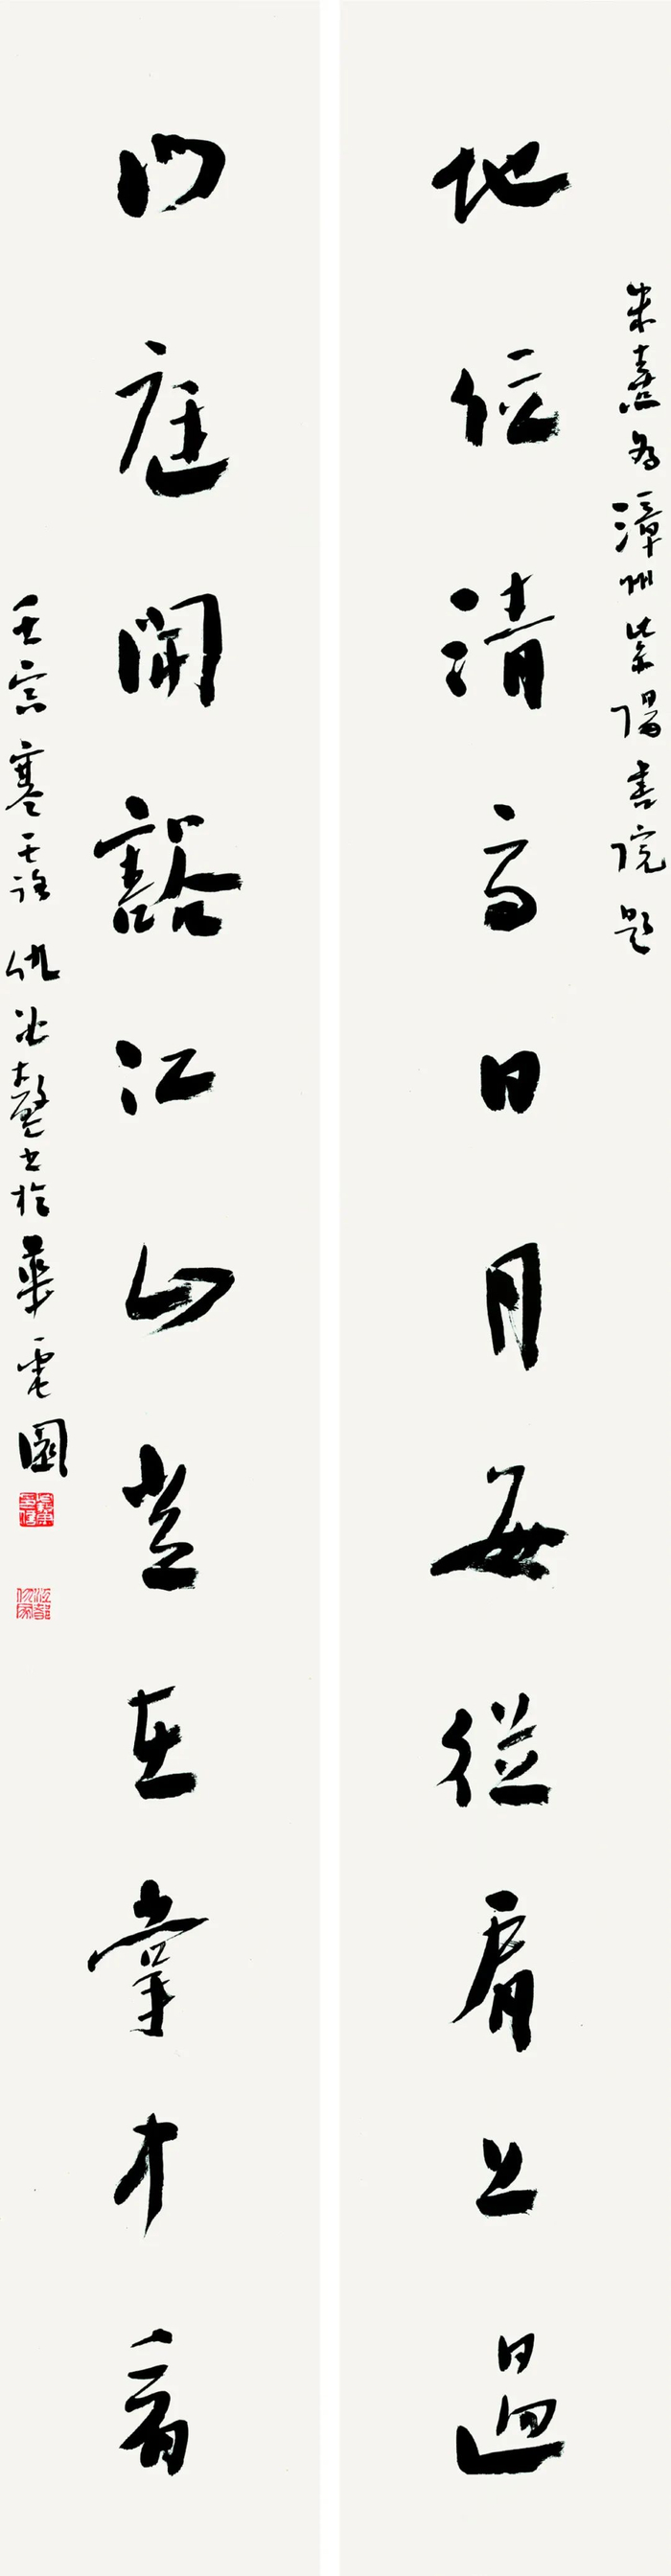 朱熹為漳州紫陽書院題
地位清高日月每從肩上過
門庭開豁江山在掌中看
壬寅寒仇書於華電園